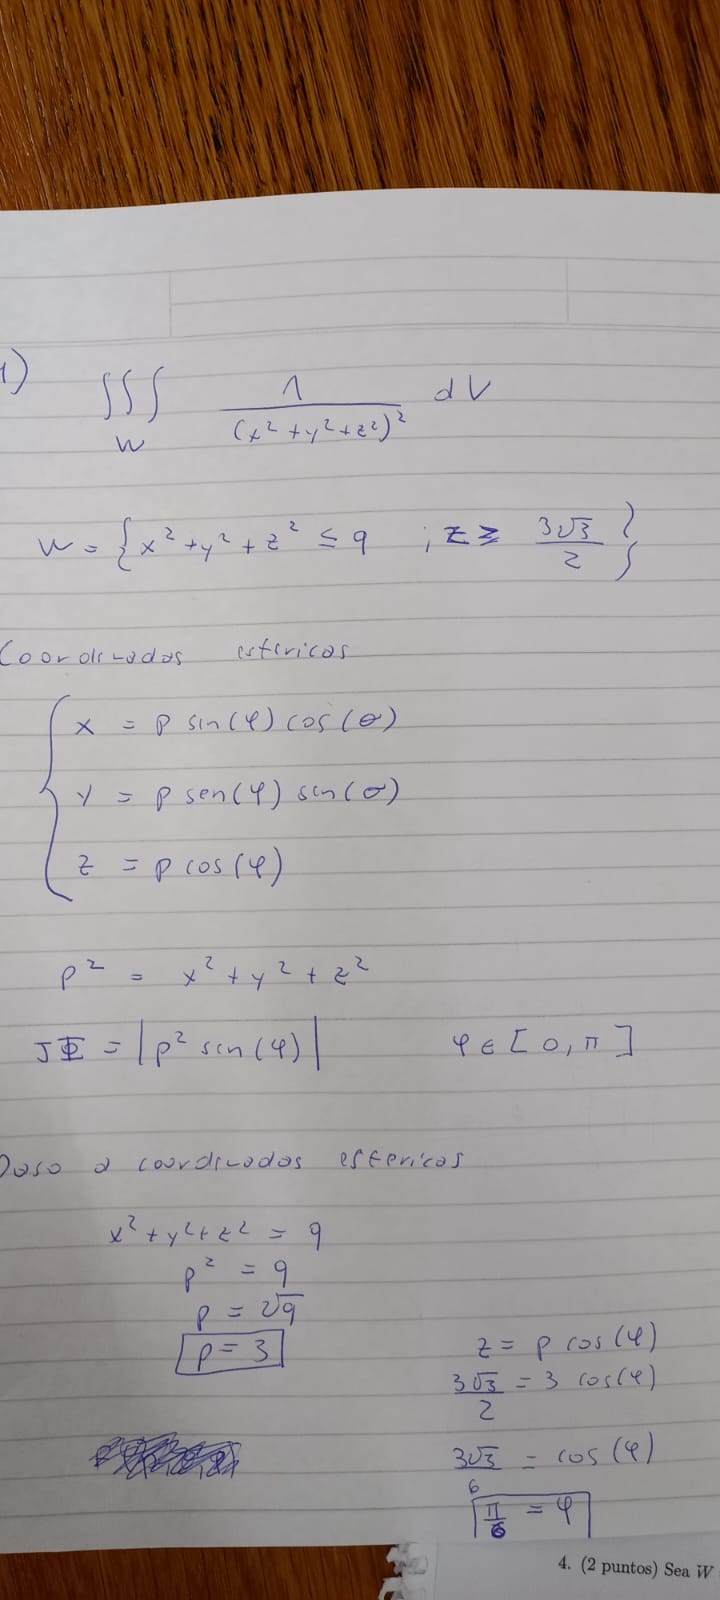 1)
∫∫∫ 1/(x²+y²+z²)² dV
W
W = { x²+y²+z² ≤ 9 ; z ≥ 3√3/2 }
Coordenadas esfericas
x = ρ sin(φ) cos(θ)
y = ρ sen(φ) sen(θ)
z = ρ cos(φ)
ρ² = x²+y²+z²
JΦ = |ρ² sen(φ)| φ ∈ [0,π]
Paso a coordenadas esfericas
x²+y²+z² = 9
ρ² = 9
ρ = √9
ρ = 3
z = ρ cos(φ)
3√3/2 = 3 cos(φ)
3√3/6 = cos(φ)
π/6 = φ
4. (2 puntos) Sea W